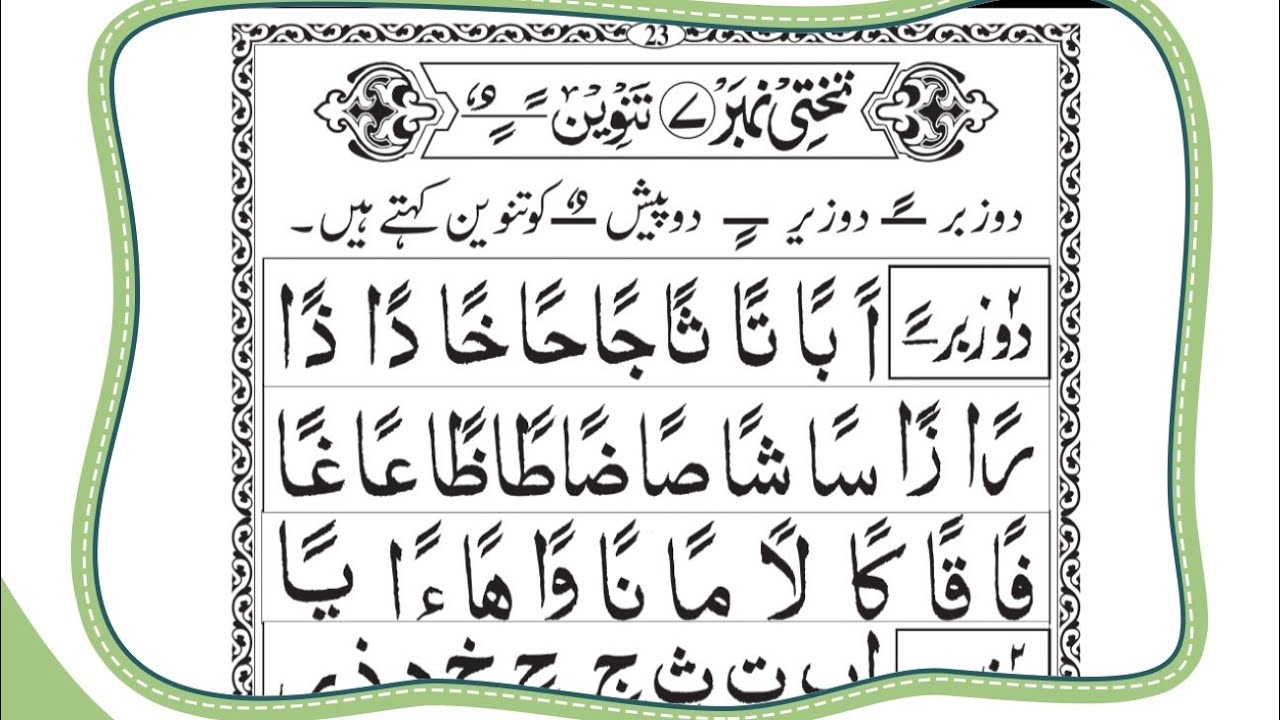 23
تختی نمبر ۷ تنوین ـً ـٍ ـٌ
دو زبر ـً دو زیر ـٍ دو پیش ـٌ کو تنوین کہتے ہیں۔
دو زبر ـً اً بًا تًا ثًا جًا حًا خًا دًا ذًا
رًا زًا سًا شًا صًا ضًا طًا ظًا عًا غًا
فًا قًا كًا لًا مًا نًا وًا هًا ءًا يًا